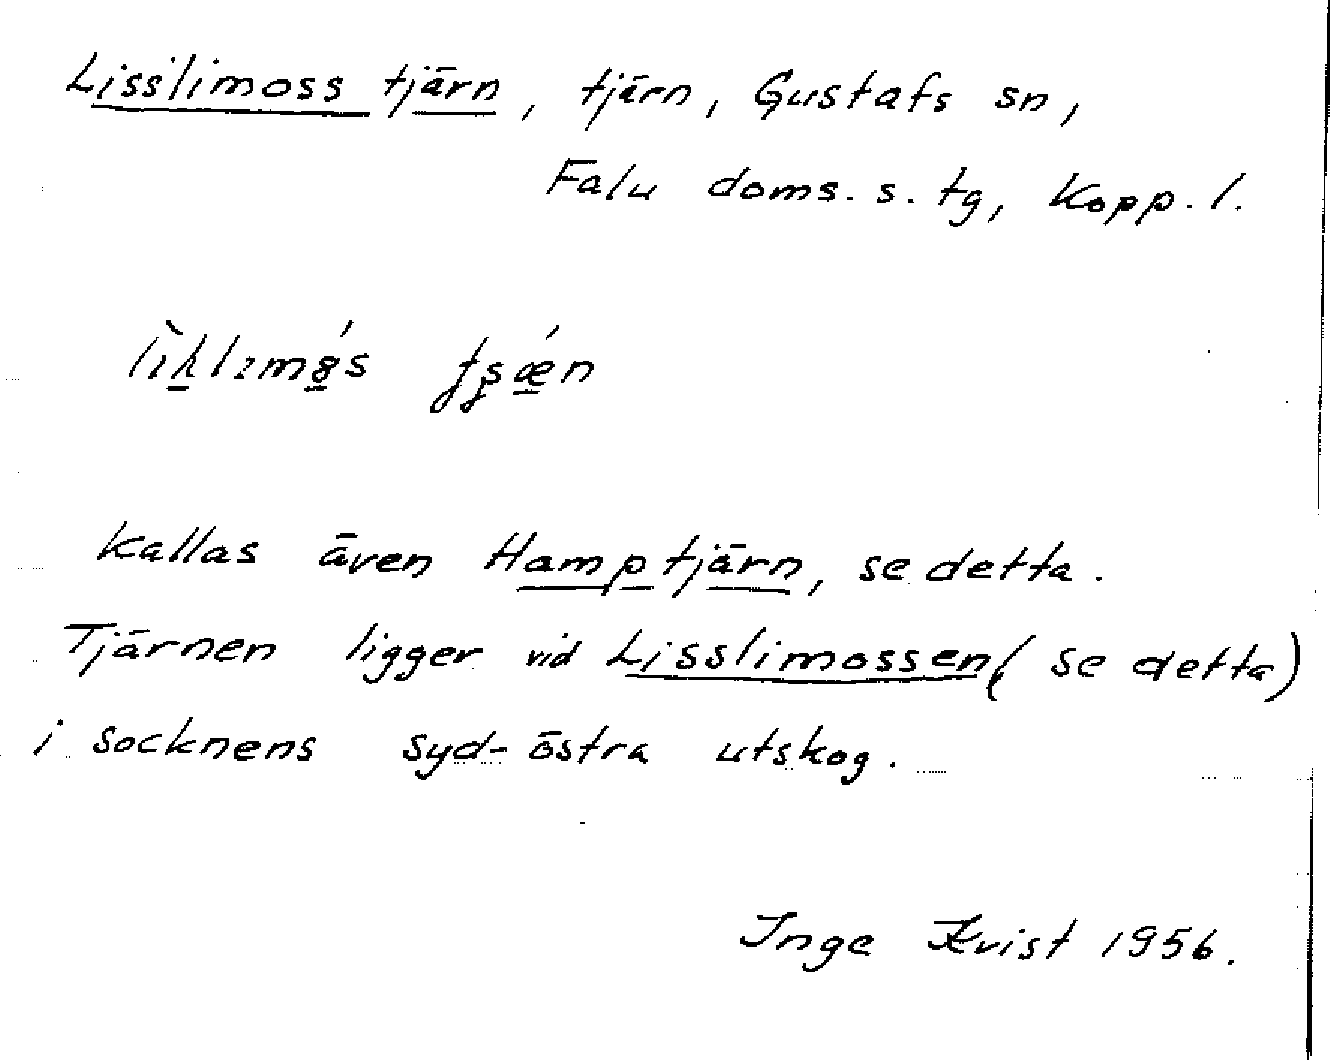 Lisslimoss tjärn, tjärn, Gustafs sn,
Falu doms. s. tg, Kopp. l.
Kallas även Hamptjärn, se detta.
Tjärnen ligger vid Lisslimossen (se detta)
i socknens syd-östra utskog.
Inge Kvist 1956.